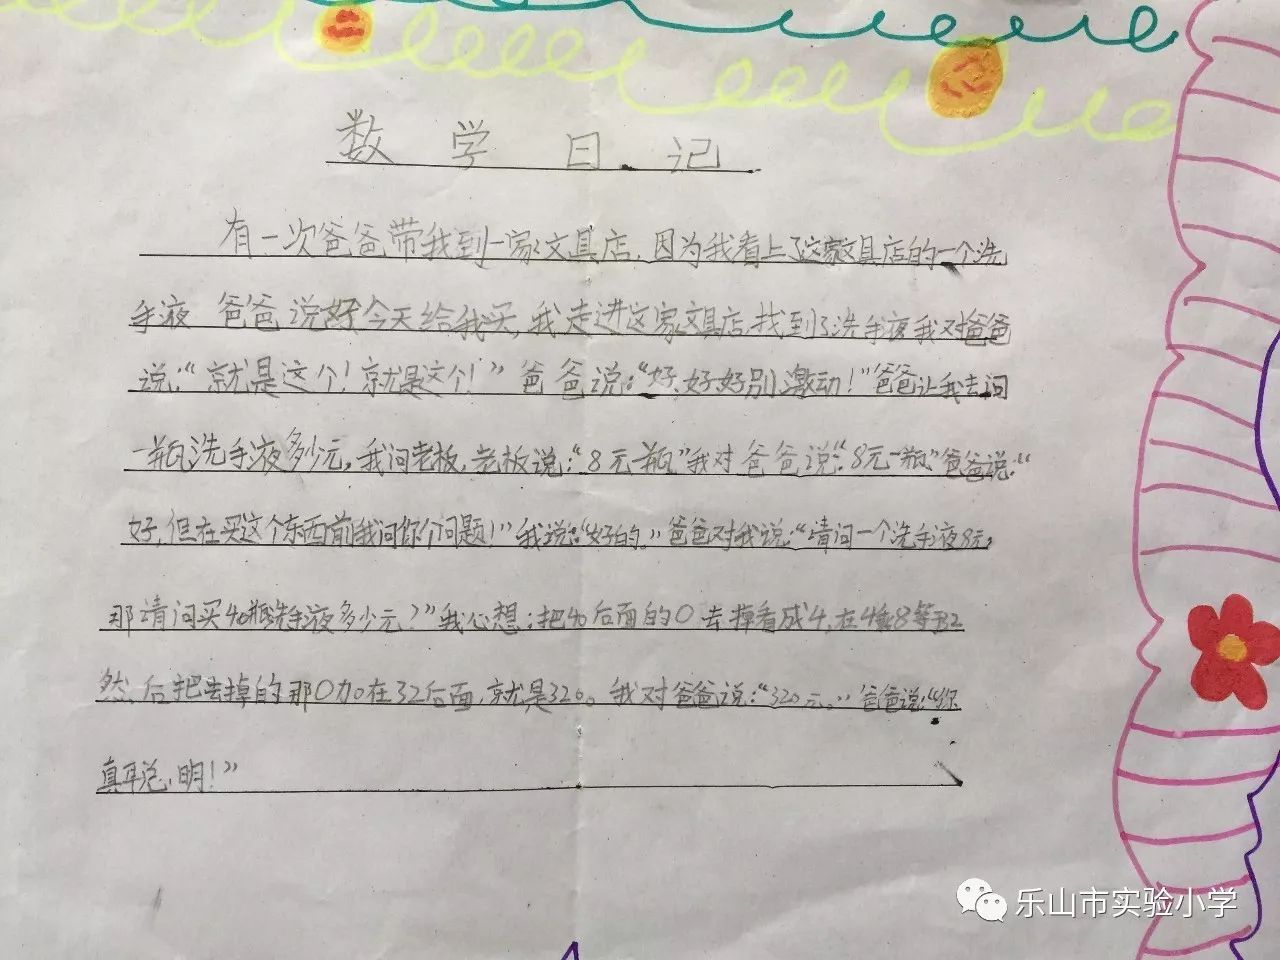 数学日记
有一次爸爸带我到一家文具店,因为我看上了这家文具店的一个洗
手液 爸爸说好今天给我买,我走进这家文具店,找到了洗手液我对爸爸
说:“就是这个!就是这个!”爸爸说:“好,好,好别激动!”爸爸让我去问
一瓶洗手液多少元,我问老板,老板说:“8元一瓶”我对爸爸说:“8元一瓶”爸爸说:“
好,但在买这个东西前我问你个问题!”我说:“好的。”爸爸对我说:“请问一个洗手液8元,
那请问买40瓶洗手液多少元?”我心想:把40后面的0去掉看成4,在4乘8等于32
然后把去掉的那0加在32后面,就是320。我对爸爸说:“320元。”爸爸说:“你
真聪明!”
乐山市实验小学